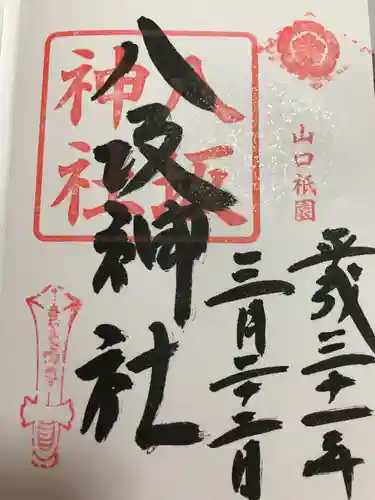 山口祇園
平成三十一年
三月二十二日
八坂神社
八坂
神社